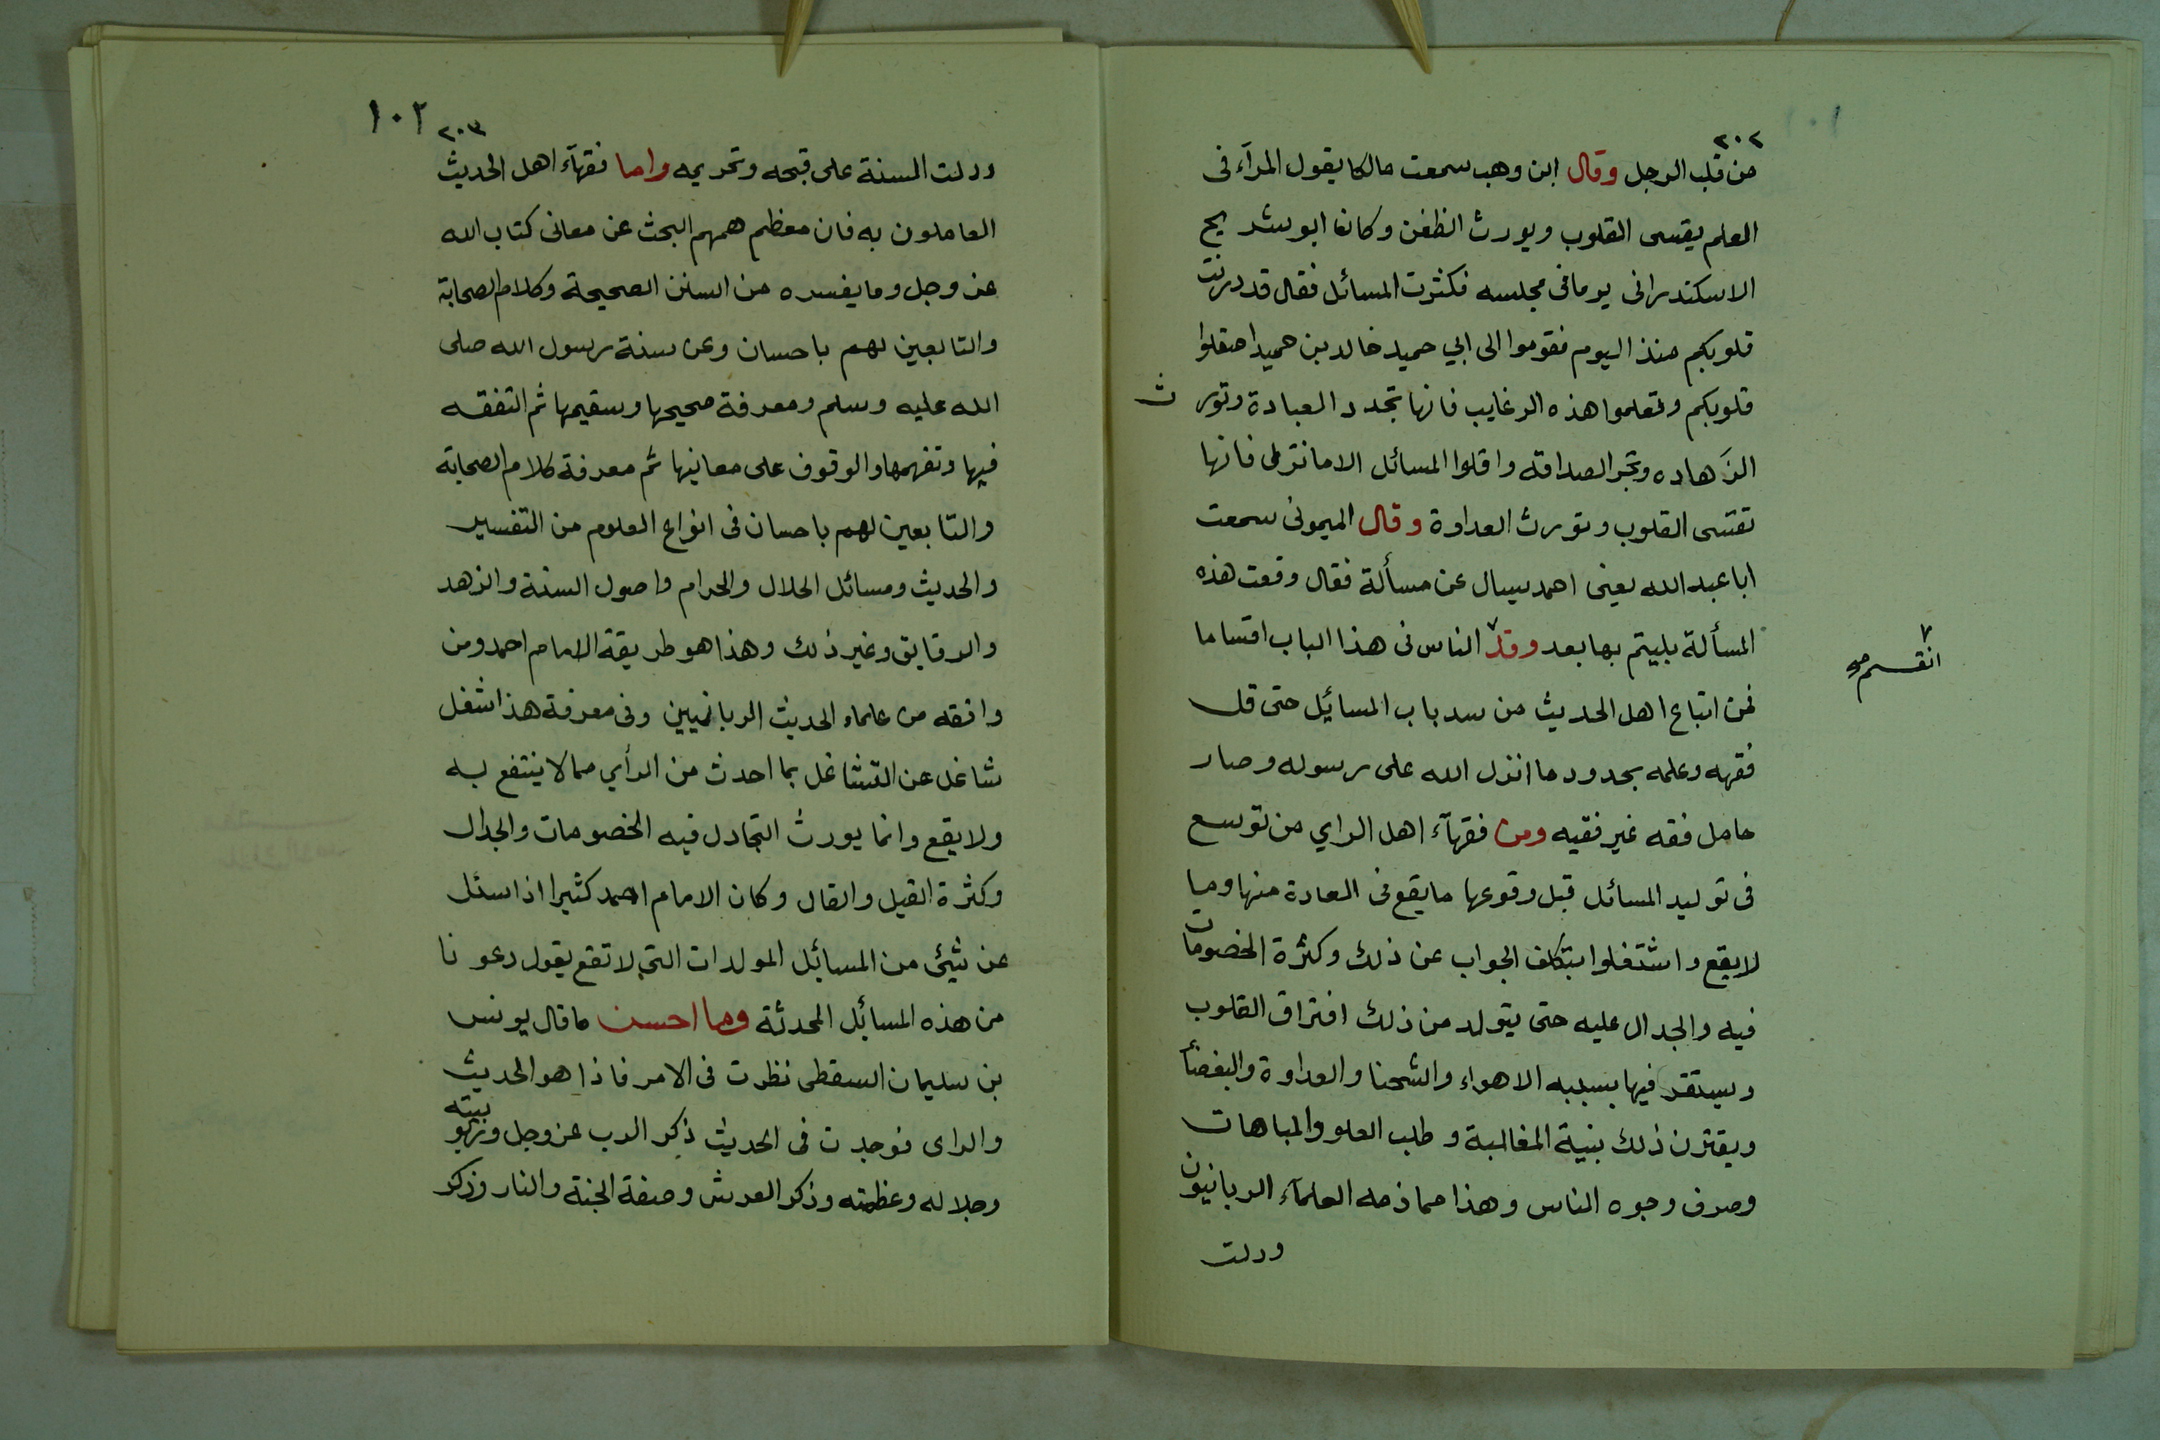 ٢٠٢
من قلب الرجل وقال ابن وهب سمعت مالكا يقول المرآء فى
العلم يقسى القلوب ويورث الظغن وكانا ابو شريح
الاسكندرانى يوما فى مجلسه فكثرت المسائل فقال قد درنت
قلوبكم منذ اليوم فقوموا الى ابي حميد خالد بن حميد اصقلوا
قلوبكم وتعلموا هذه الرغايب فانها تجدد العبادة وتورث
الزهاده وتجر الصداقه واقلوا المسائل الا ما نزل فانها
تقسى القلوب وتورث العداوة وقال الميمونى سمعت
ابا عبد الله يعنى احمد يسال عن مسألة فقال وقعت هذه
المسألة بليتم بها بعد وقد الناس فى هذا الباب اقساما
انقسم صح
فمن اتباع اهل الحديث من سد باب المسايل حتى قل
فقهه وعلمه بحدود ما انزل الله على رسوله وصار
حامل فقه غير فقيه ومن فقهآء اهل الراي من توسع
فى توليد المسائل قبل وقوعها ما يقع فى العادة منها وما
لا يقع واشتغلوا بتكلف الجواب عن ذلك وكثرة الخصومات
فيه والجدال عليه حتى يتولد من ذلك افتراق القلوب
ويستقر فيها بسببه الاهواء والشحنا والعداوة والبغضأ
ويقترن ذلك بنية المغالبة وطلب العلو والمباهات
وصرف وجوه الناس وهذا مما ذمه العلمآء الربانيون
ودلت
١٠٢ ٢٠٣
ودلت السنة على قبحه وتحريمه واما فقهآء اهل الحديث
العاملون به فان معظم همهم البحث عن معانى كتاب الله
عز وجل وما يفسره من السنن الصحيحة وكلام الصحابة
والتابعين لهم باحسان وعن سنة رسول الله صلى
الله عليه وسلم ومعرفة صحيحها وسقيمها ثم التفقه
فيها وتفهمها والوقوف على معانيها ثم معرفة كلام الصحابة
والتابعين لهم باحسان فى انواع العلوم من التفسير
والحديث ومسائل الحلال والحرام واصول السنة والزهد
والرقايق وغير ذلك وهذا هو طريقة الامام احمد ومن
وافقه من علماء الحديث الربانيين وفى معرفة هذا شغل
شاغل عن التشاغل بما احدث من الرأي مما لا ينتفع به
ولا يقع وانما يورث التجادل فيه الخصومات والجدال
وكثرة القيل والقال وكان الامام احمد كثيرا اذا سئل
عن شيئ من المسائل المولدات التي لا تقع يقول دعونا
من هذه المسائل المحدثة وما احسن ما قال يونس
بن سليمان السقطى نظرت فى الامر فاذا هو الحديث
والراى فوجدت فى الحديث ذكر الرب عز وجل وربوبيته
وجلاله وعظمته وذكر العرش وصفة الجنة والنار وذكر